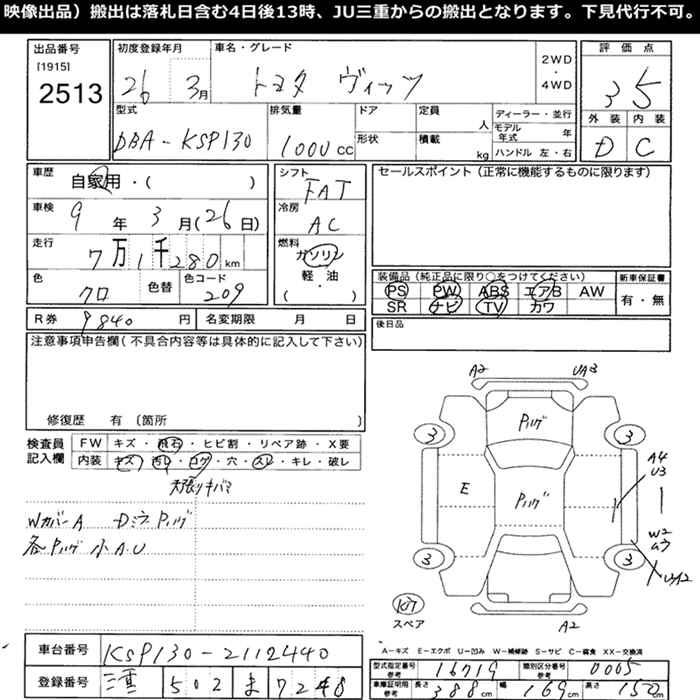 映像出品）搬出は落札日含む4日後13時、JU三重からの搬出となります。下見代行不可。
出品番号
[1915]
2513
初度登録年月
26 3月
車名・グレード
トヨタ ヴィッツ
2WD
・
4WD
評価点
3.5
外装 内装
D C
型式
DBA-KSP130
排気量
1000cc
ドア
形状
定員 人
積載 kg
ディーラー・並行
モデル年式 年
ハンドル 左・右
車歴
自家用・( )
シフト
FAT
車検
9年3月(26日)
冷房
AC
走行
7万1千280km
燃料
ガソリン
軽・油
( )
色
クロ
色替
色コード
209
R券 9840円
名変期限 月 日
セールスポイント（正常に機能するものに限ります）
装備品（純正品に限り○をつけてください）
PS PW ABS エアB AW
SR ナビ TV カワ
新車保証書
有・無
後日品
注意事項申告欄（不具合内容等は具体的に記入して下さい）
修復歴 有〔箇所 〕
検査員記入欄
FW キズ・飛石・ヒビ割・リペア跡・X要
内装 キズ・汚レ・コゲ・穴・スレ・キレ・破レ
天張りキバミ
WカバーA DミラPリング
各Pリング 小A.U
A2 UA3
Pリング
3 3
E
Pリング
A4
U3
W2
3 3
UA2
A2
スペア
A－キズ E－エクボ U－凹み W－補修跡 S－サビ C－腐食 XX－交換済
車台番号
KSP130-2112440
登録番号
三重 502 ま 7248
型式指定番号 参考 16719
類別区分番号 参考 0005
車庫証明用 参考
長さ 388cm 幅 169cm 高さ 150cm